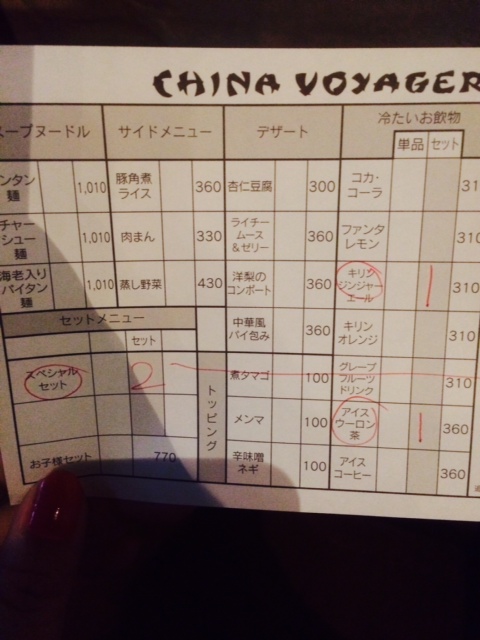 CHINA VOYAGER
ープヌードル サイドメニュー デザート 冷たいお飲物
単品 セット
ンタン
麺
1,010
豚角煮
ライス
360
杏仁豆腐
300
コカ・
コーラ
31
チャー
シュー
麺
1,010
肉まん
330
ライチー
ムース
&ゼリー
360
ファンタ
レモン
310
海老入り
パイタン
麺
1,010
蒸し野菜
430
洋梨の
コンポート
360
キリン
ジンジャー
エール
1
310
セットメニュー
セット
中華風
パイ包み
360
キリン
オレンジ
310
スペシャル
セット
2
トッピング
煮タマゴ
100
グレープ
フルーツ
ドリンク
310
メンマ
100
アイス
ウーロン
茶
1
360
お子様セット
770
辛味噌
ネギ
100
アイス
コーヒー
360